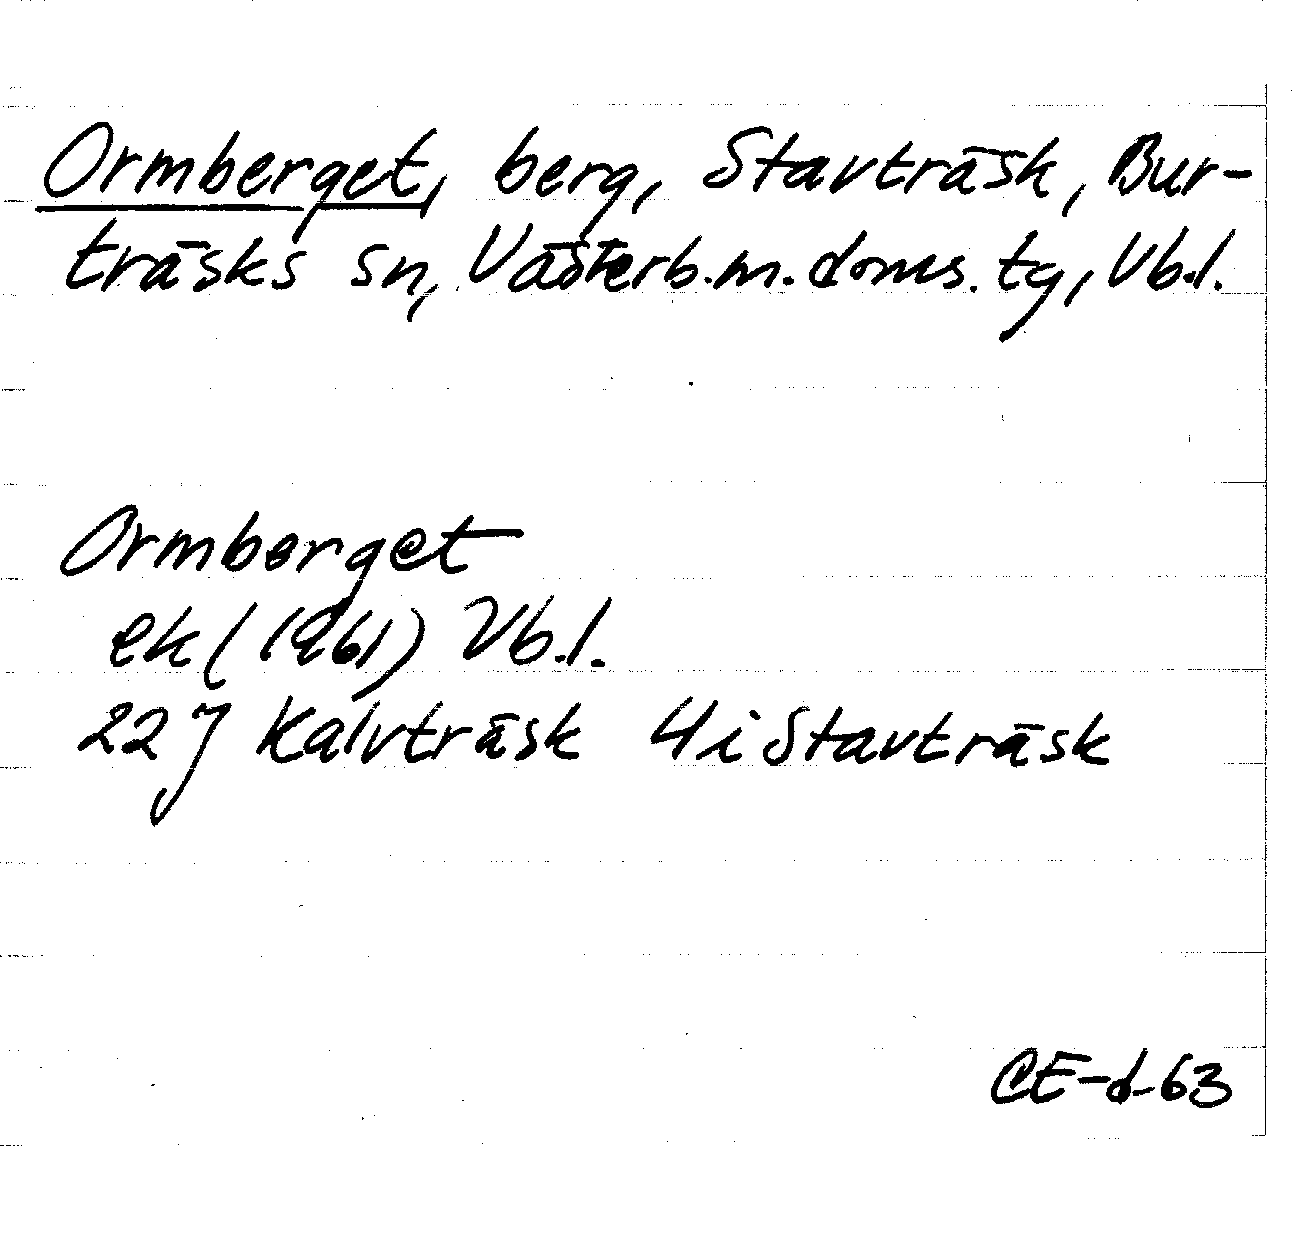 Ormberget, berg, Stavträsk, Bur-
träsks sn, Västerb.m.doms.tg, Vb.l.
Ormberget
ek (1961) Vb.l.
22 J Kalvträsk 4i Stavträsk
CE-d-63